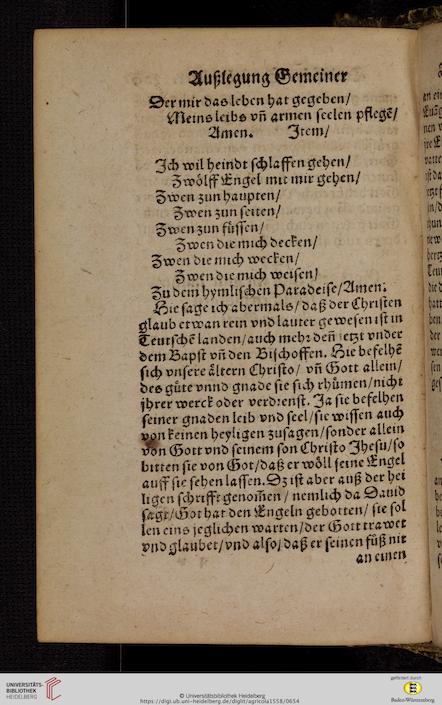 Außlegung Gemeiner
Der mir das leben hat gegeben/
Meins leibs vñ armen seelen pflegẽ/
Amen. Item/
Ich wil heindt schlaffen gehen/
Zwölff Engel mit mir gehen/
Zwen zun haupten/
Zwen zun seiten/
Zwen zun füssen/
Zwen die mich decken/
Zwen die mich wecken/
Zwen die mich weisen/
Zu dem hymlischen Paradeise/Amen.
Hie sage ich abermals/daß der Christen
glaub etwan rein vnd lauter gewesen ist in
Teutschẽ landen/auch mehr deñ ietzt vnder
dem Bapst vñ den Bischoffen. Hie befelhẽ
sich vnsere ältern Christo/ vñ Gott allein/
des güte vnnd gnade sie sich rhümen/nicht
jhrer werck oder verdienst. Ja sie befelhen
seiner gnaden leib vnd seel/sie wissen auch
von keinen heyligen zusagen/sonder allein
von Gott vnd seinem son Christo Jhesu/so
bitten sie von Got/daß er wöll seine Engel
auff sie sehen lassen. Dz ist aber auß der hei
ligen schrifft genom̃en/ nemlich da Dauid
sagt/Got hat den Engeln gebotten/ sie sol
len eins jeglichen warten/der Gott trawet
vnd glaubet/vnd also/daß er seinen fůß nit
an einen
UNIVERSITÄTS-
BIBLIOTHEK
HEIDELBERG
© Universitätsbibliothek Heidelberg
https://digi.ub.uni-heidelberg.de/diglit/agricola1558/0654
gefördert durch
Baden-Württemberg